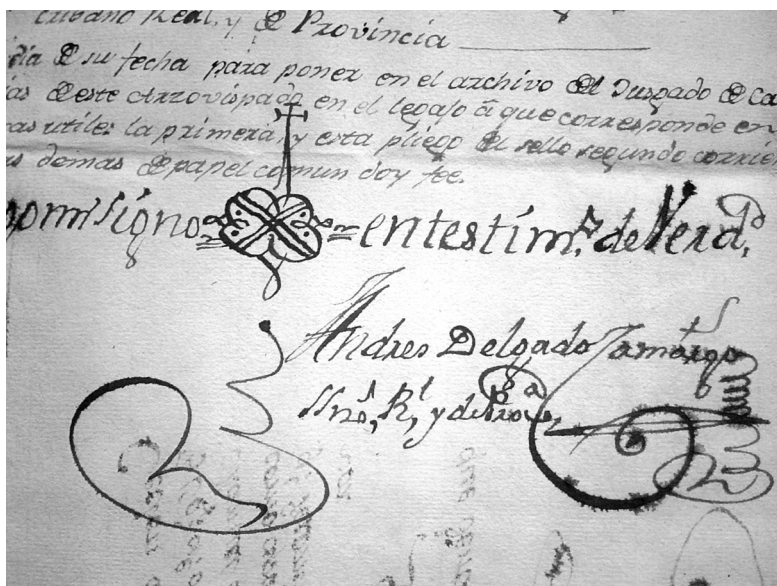 cribano Real, y de Provincia
dia de su fecha para poner en el archivo del Juzgado de Ca
as de este Arzovispado en el legajo â que corresponde en
as utiles la primera, y esta pliego del sello segundo corrien
s demas de papel comun doy fee.
pong mi signo = = en testim.º de Verd.d
Andres Delgado Tamarizo
SSnô, Rl, y de Prova,